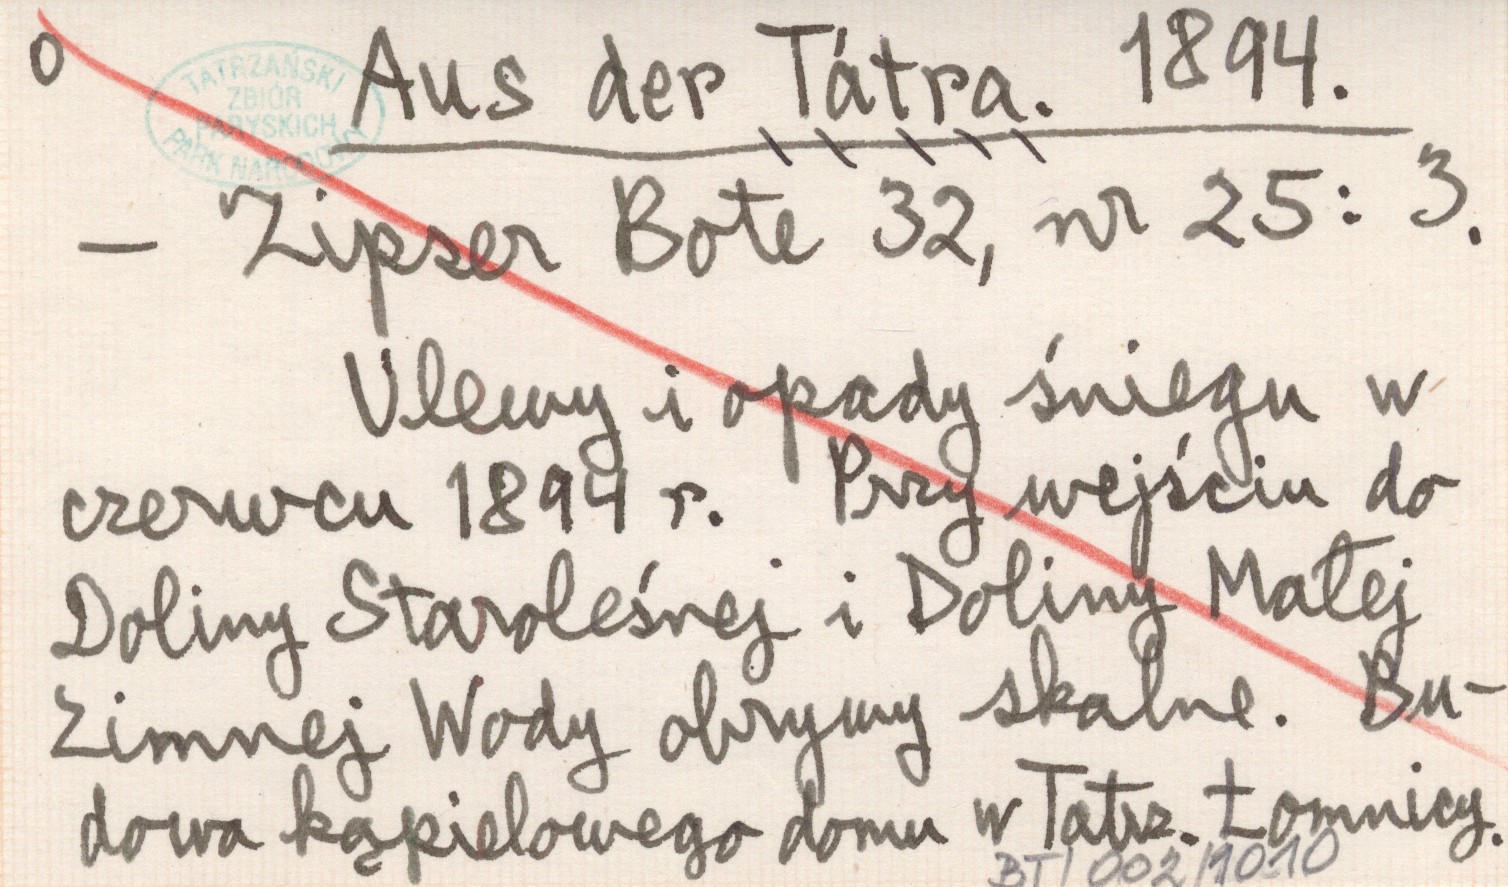 o Aus der Tátra. 1894.
TATRZAŃSKI
ZBIÓR
PARYSKICH
PARK NARODOWY
— Zipser Bote 32, nr 25: 3.
Ulewy i opady śniegu w
czerwcu 1894 r. Przy wejściu do
Doliny Staroleśnej i Doliny Małej
Zimnej Wody obrywy skalne. Bu-
dowa kąpielowego domu w Tatrz. Łomnicy.
BT/002/1010